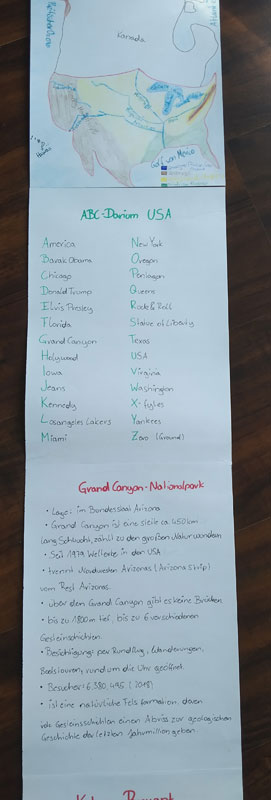 Kanada
Golf von Mexico
ABC-Darium USA
America
Barak Obama
Chicago
Donald Trump
Elvis Presley
Florida
Grand Canyon
Hollywood
Iowa
Jeans
Kennedy
Losangeles Lakers
Miami
New York
Oregon
Pentagon
Queens
Rock & Roll
Statue of Liberty
Texas
USA
Virginia
Washington
X-files
Yankees
Zero (Ground)
Grand Canyon-Nationalpark
• Lage: im Bundesstaat Arizona
• Grand Canyon ist eine steile ca 450km
lang Schlucht, zählt zu den großen Naturwundern
• Seit 1979 Welterbe in den USA
• trennt Nordwesten Arizonas (Arizona Strip)
vom Rest Arizonas.
• über dem Grand Canyon gibt es keine Brücken
• bis zu 1800m tief, bis zu 6 verschiedenen
Gesteinschichten.
• Besichtigung: per Rundflug, Wanderungen,
Bootstouren, rund um die Uhr geöffnet.
• Besucher: 6,380,495 (2018)
• ist eine natürliche Fels formation, deren
Gesteinsschichten einen Abriss zur geologischen
Geschichte der letzten Jahrmillionen geben